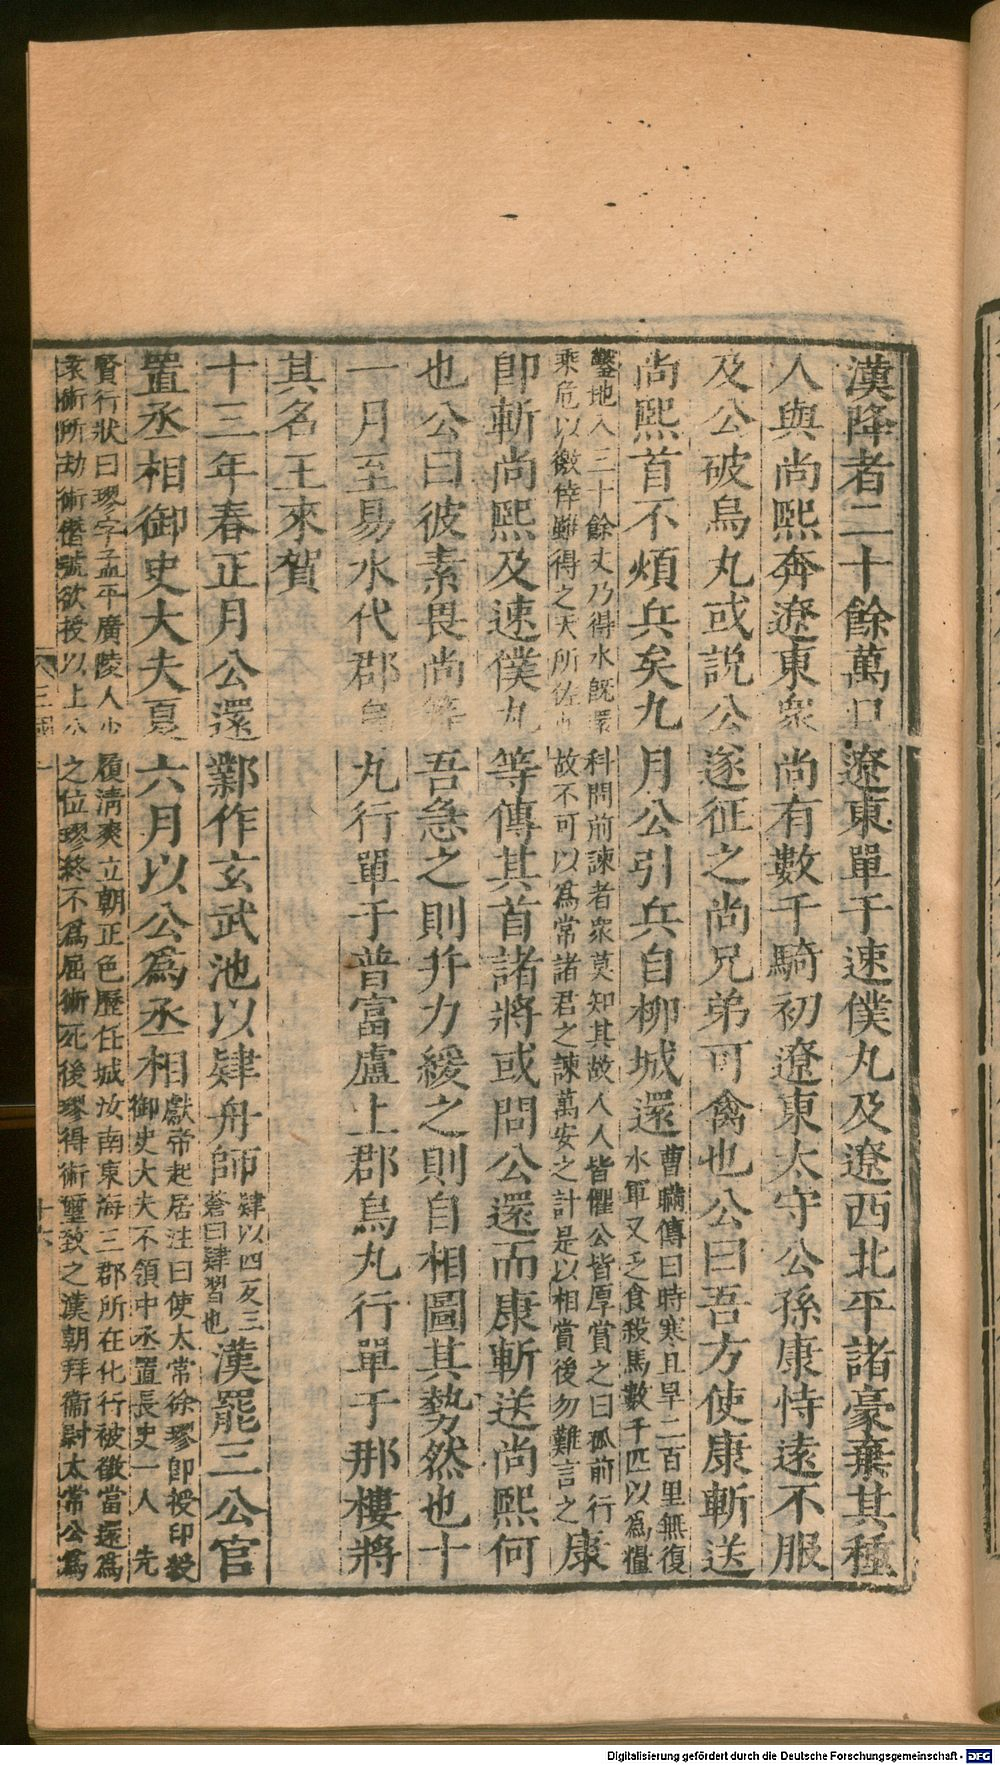 漢降者二十餘萬口遼東單于速僕丸及遼西北平諸豪棄其種
人與尚熙奔遼東衆尚有數千騎初遼東太守公孫康恃遠不服
及公破烏丸或說公遂征之尚兄弟可禽也公曰吾方使康斬送
尚熙首不煩兵矣九月公引兵自柳城還
曹瞞傳曰時寒且旱二百里無復
水軍又乏食殺馬數千匹以爲糧
鑿地入三十餘丈乃得水旣還科問前諫者衆莫知其故人人皆懼公皆厚賞之曰孤前行
乘危以徼倖雖得之天所佐也故不可以爲常諸君之諫萬安之計是以相賞後勿難言之
康
卽斬尚熙及速僕丸等傳其首諸將或問公還而康斬送尚熙何
也公曰彼素畏尚等吾急之則幷力緩之則自相圖其勢然也十
一月至易水代郡烏丸行單于普富盧上郡烏丸行單于那樓將
其名王來賀
十三年春正月公還鄴作玄武池以肄舟師
肄以四反三
蒼曰肄習也
漢罷三公官
置丞相御史大夫夏六月以公爲丞相
獻帝起居注曰使太常徐璆卽授印綬
御史大夫不領中丞置長史一人 先
賢行狀曰璆字孟平廣陵人少履清爽立朝正色歷任城汝南東海三郡所在化行被徵當還爲
袁術所劫術僭號欲授以上公之位璆終不爲屈術死後璆得術璽致之漢朝拜衞尉太常公爲
三國 一 十六
Digitalisierung gefördert durch die Deutsche Forschungsgemeinschaft - DFG